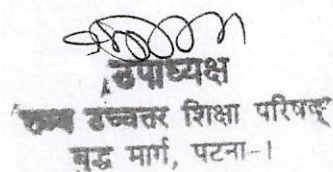 उपाध्यक्ष
राज्य उच्चतर शिक्षा परिषद्
बुद्ध मार्ग, पटना-1